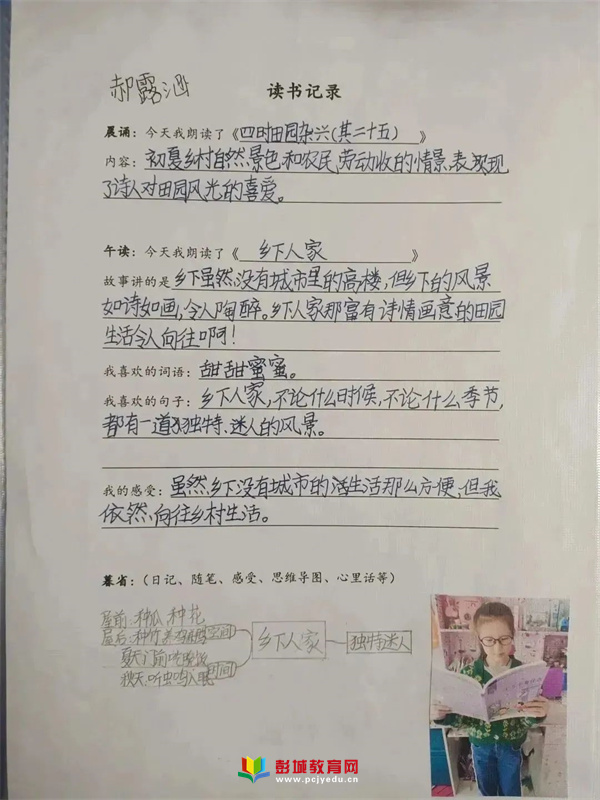 郝露涵
读书记录
晨诵：今天我朗读了《四时田园杂兴(其二十五)》
内容：初夏乡村自然景色和农民劳动收的情景,表现
了诗人对田园风光的喜爱。
午读：今天我朗读了《乡下人家》
故事讲的是乡下虽然没有城市里的高楼,但乡下的风景
如诗如画,令人陶醉。乡下人家那富有诗情画意的田园
生活令人向往啊!
我喜欢的词语：甜甜蜜蜜。
我喜欢的句子：乡下人家,不论什么时候,不论什么季节,
都有一道独特、迷人的风景。
我的感受：虽然乡下没有城市的生活那么方便,但我
依然向往乡村生活。
暮省：（日记、随笔、感受、思维导图、心里话等）
屋前:种瓜 种花
屋后:种竹 养鸡 空间
乡下人家 独特迷人
夏天门前吃晚饭
秋天,听虫鸣入眠 时间
彭城教育网
www.pcjyedu.cn